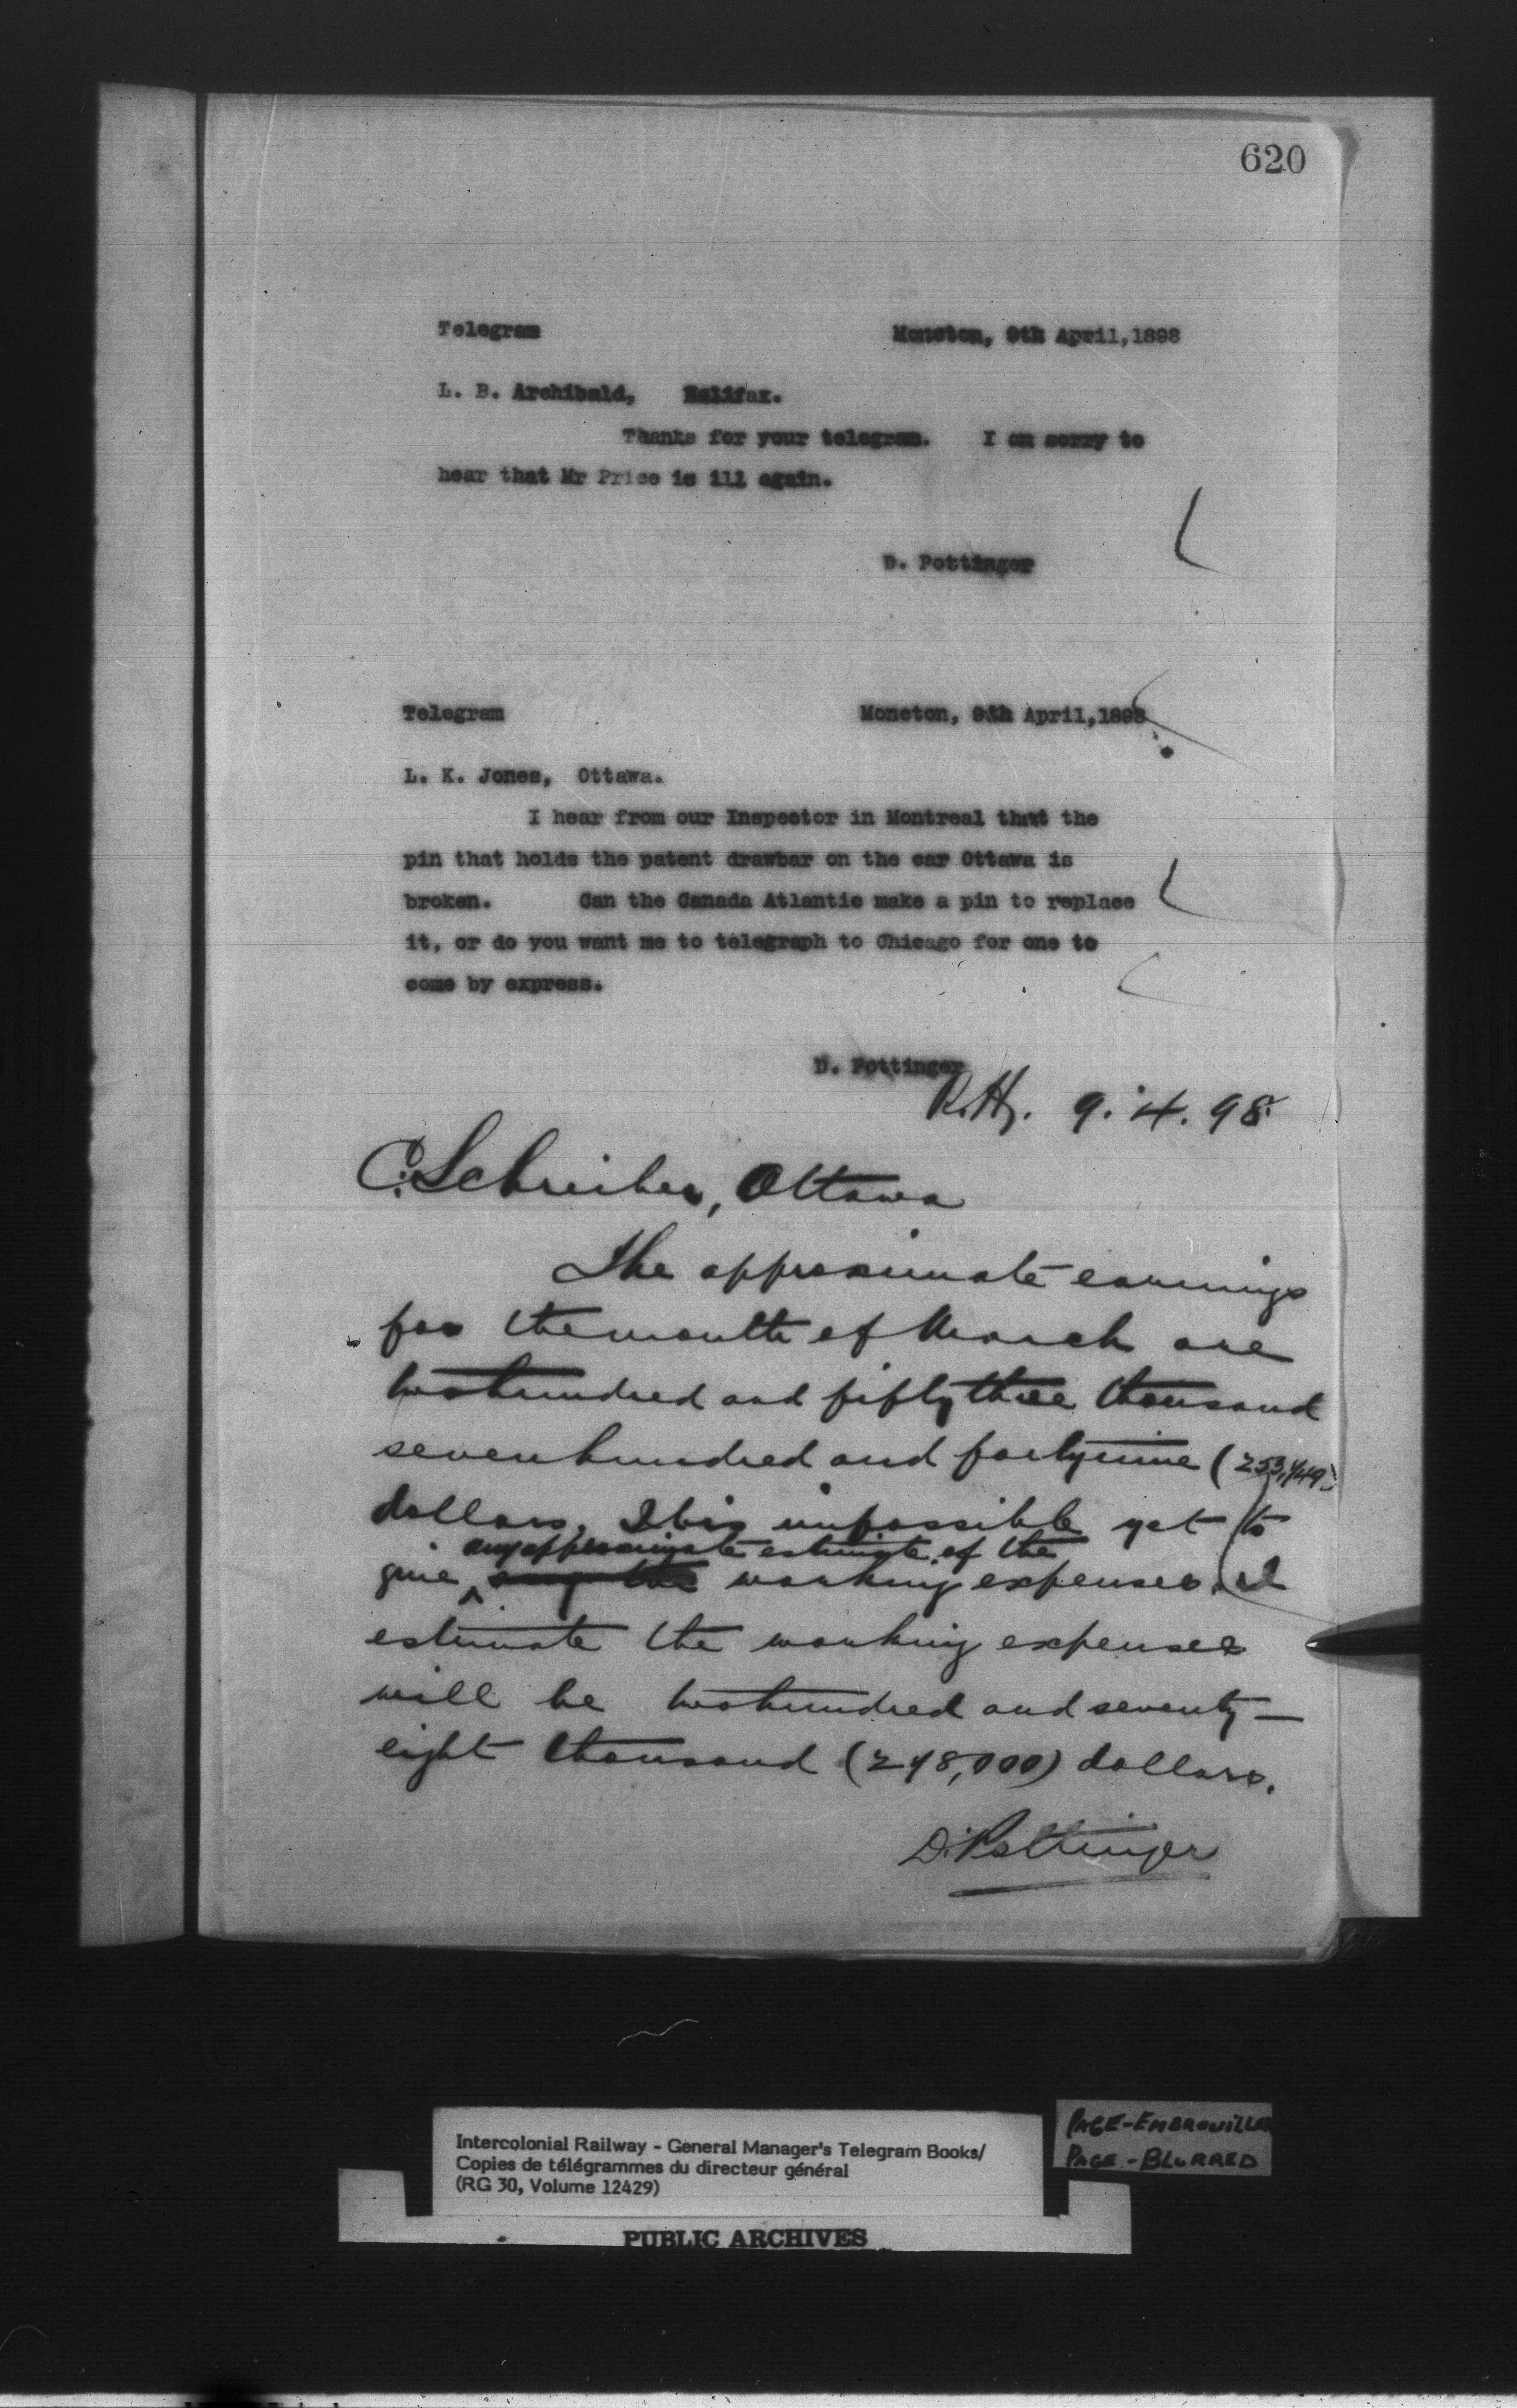 620
Telegram Moncton, 9th April, 1898
L. B. Archibald, Halifax.
Thanks for your telegram. I am sorry to
hear that Mr Price is ill again.
D. Pottinger
Telegram Moncton, 9th April, 1898
L. K. Jones, Ottawa.
I hear from our Inspector in Montreal that the
pin that holds the patent drawbar on the car Ottawa is
broken. Can the Canada Atlantic make a pin to replace
it, or do you want me to telegraph to Chicago for one to
come by express.
D. Pottinger
9. 4. 98
C. Schreiber, Ottawa
The approximate earnings
for the month of March are
two hundred and fifty three thousand
seven hundred and forty nine (253,749)
dollars. It is impossible yet to
any approximate estimate of the
give working expenses. I
estimate the working expenses
will be two hundred and seventy-
eight thousand (278,000) dollars.
D. Pottinger
Intercolonial Railway - General Manager's Telegram Books/
Copies de télégrammes du directeur général
(RG 30, Volume 12429)
PAGE-EMBROUILLE
PAGE-BLURRED
PUBLIC ARCHIVES